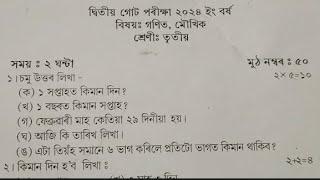 দ্বিতীয় গোট পৰীক্ষা ২০২৪ ইং বৰ্ষ
বিষয়ঃ গণিত, মৌখিক
শ্ৰেণীঃ তৃতীয়
সময় ঃ ২ ঘন্টা মুঠ নম্বৰ ঃ ৫০
১। চমু উত্তৰ লিখা - ২×৫=১০
(ক) ১ সপ্তাহত কিমান দিন?
(খ) ১ বছৰত কিমান সপ্তাহ?
(গ) ফেব্ৰুৱাৰী মাহ কেতিয়া ২৯ দিনীয়া হয়।
(ঘ) আজি কি তাৰিখ লিখা।
(ঙ) এটা তিয়ঁহ সমানে ৬ ভাগ কৰিলে প্ৰতিটো ভাগত কিমান থাকিব?
২। কিমান দিন হ'ব লিখাঃ ২+২=৪